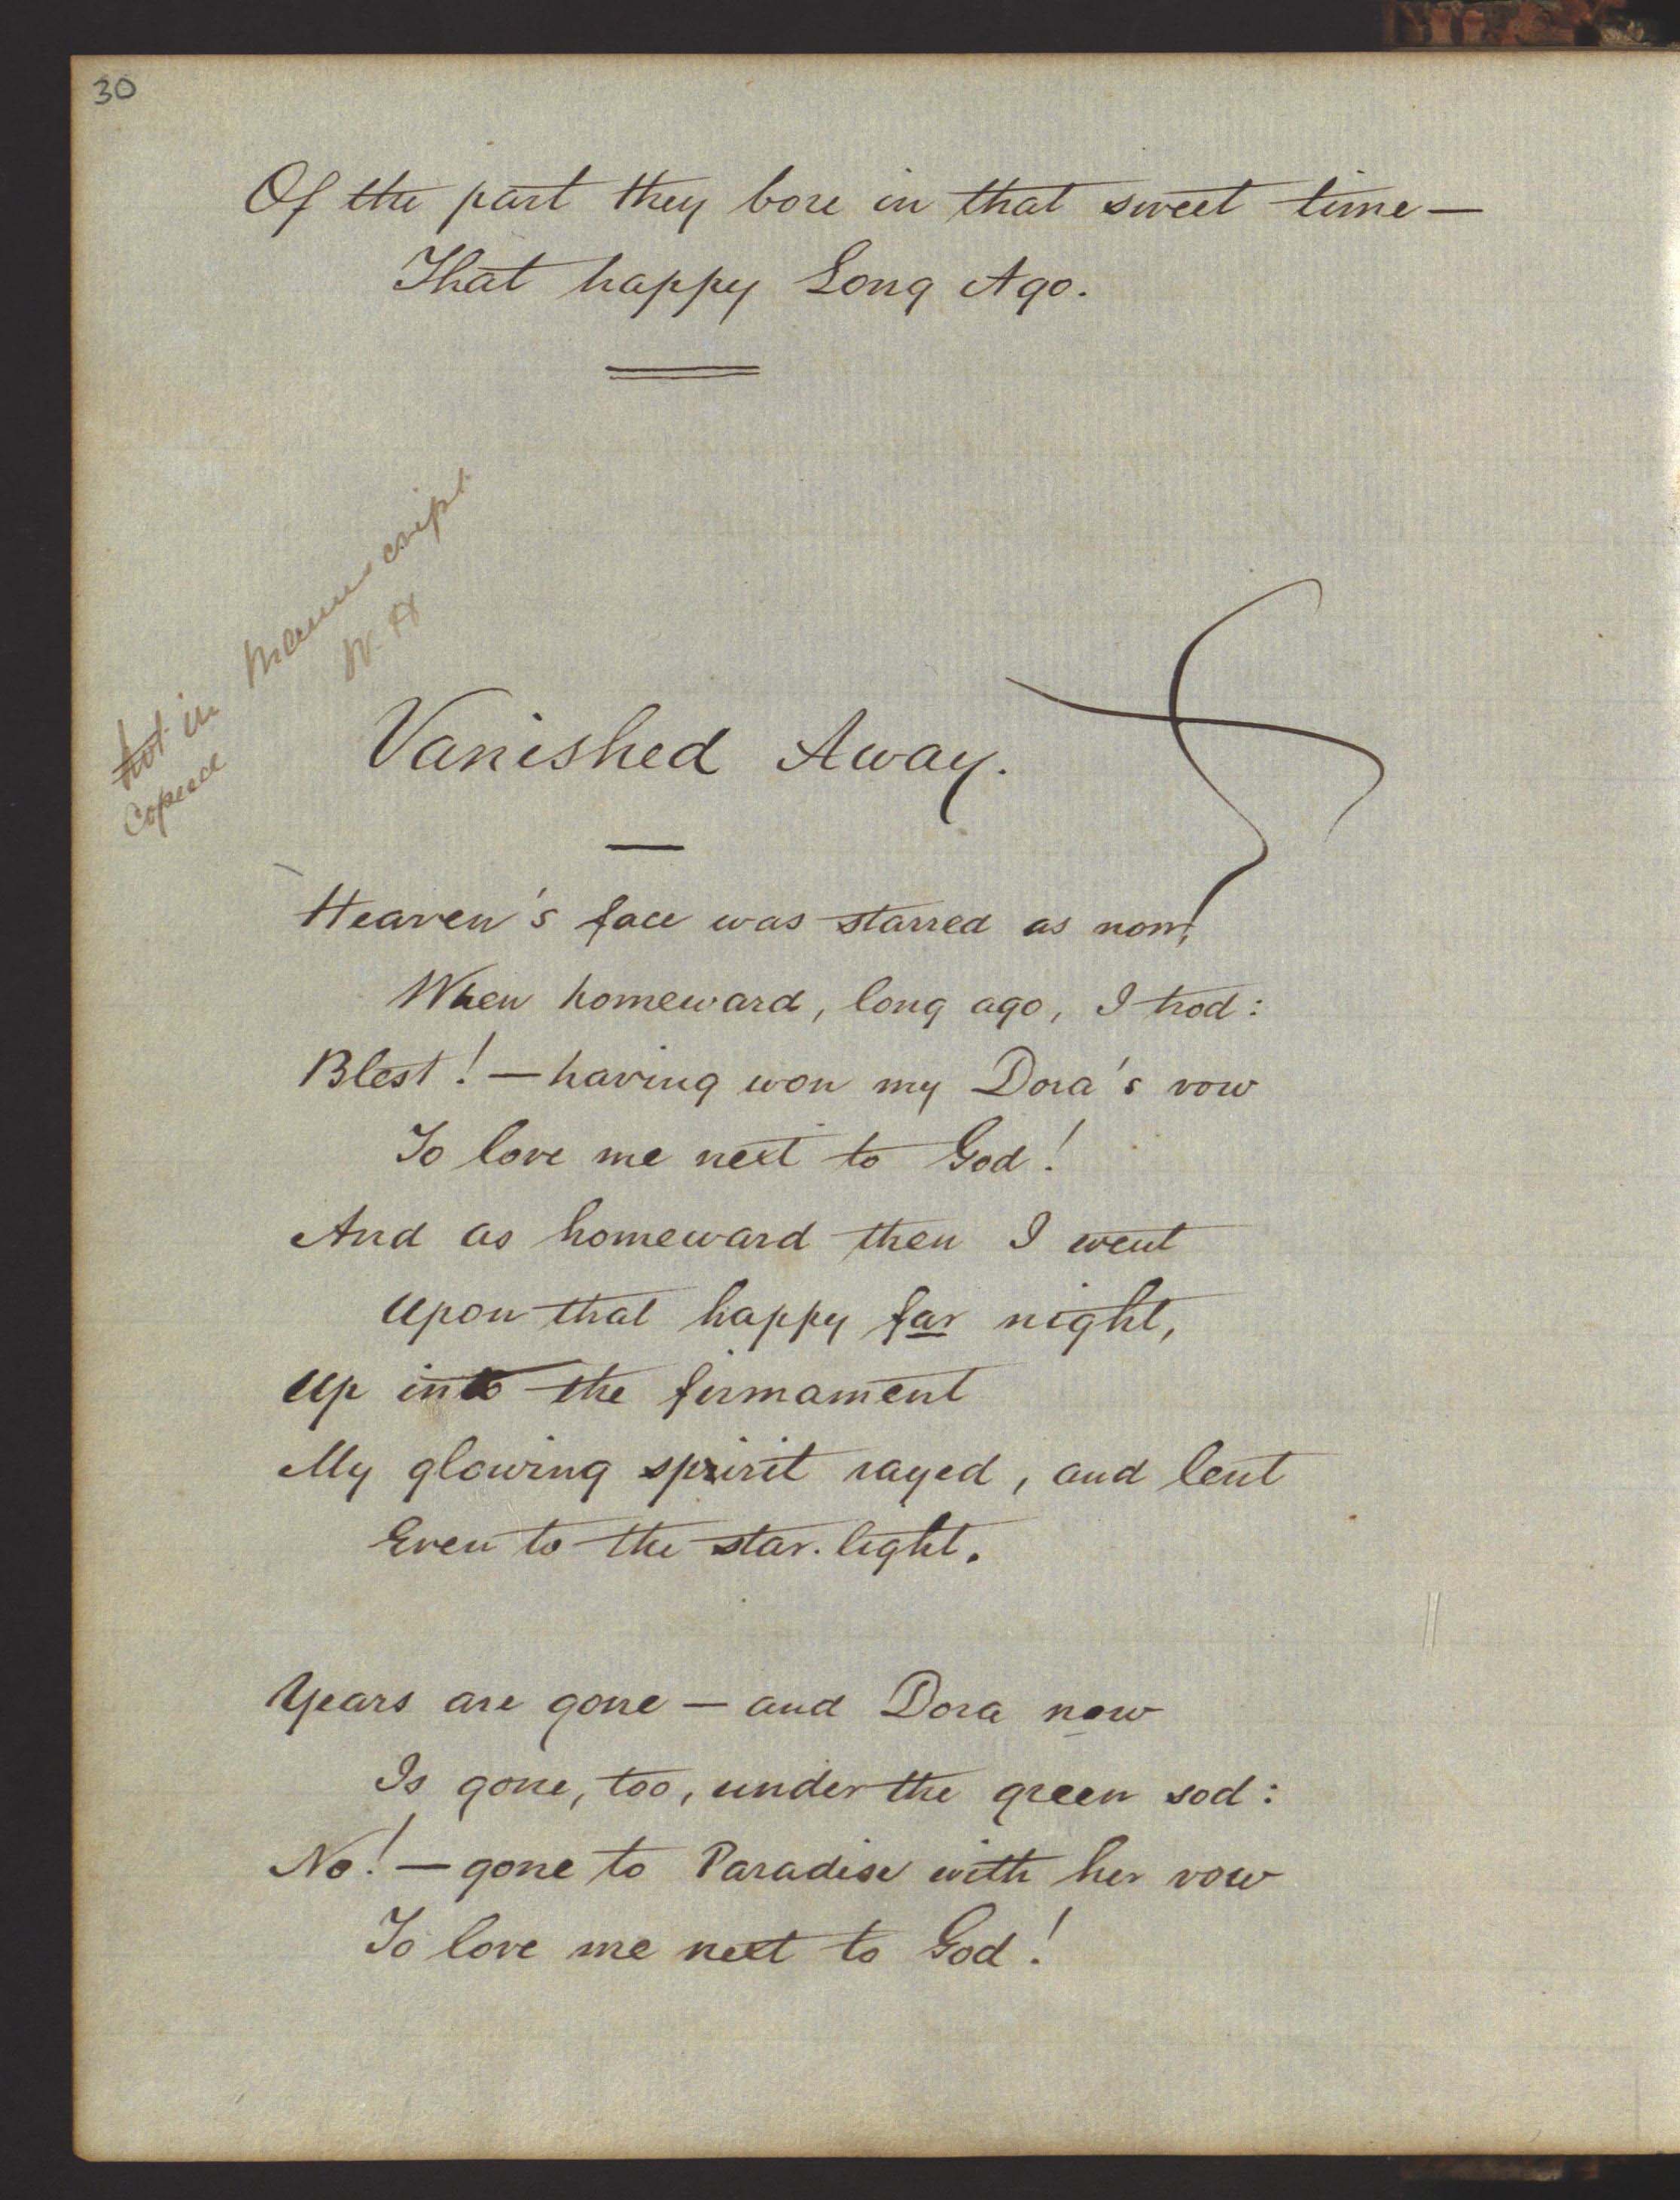 30
Of the part they bore in that sweet time —
That happy Long Ago.
Not in manuscript
W. H
Vanished Away.
Heaven's face was starred as now!
When homeward, long ago, I trod:
Blest! — having won my Dora's vow
To love me next to God!
And as homeward then I went
Upon that happy far night,
Up into the firmament
My glowing spirit rayed, and lent
Even to the star-light.
Years are gone — and Dora now
Is gone, too, under the green sod:
No! — gone to Paradise with her vow
To love me next to God!